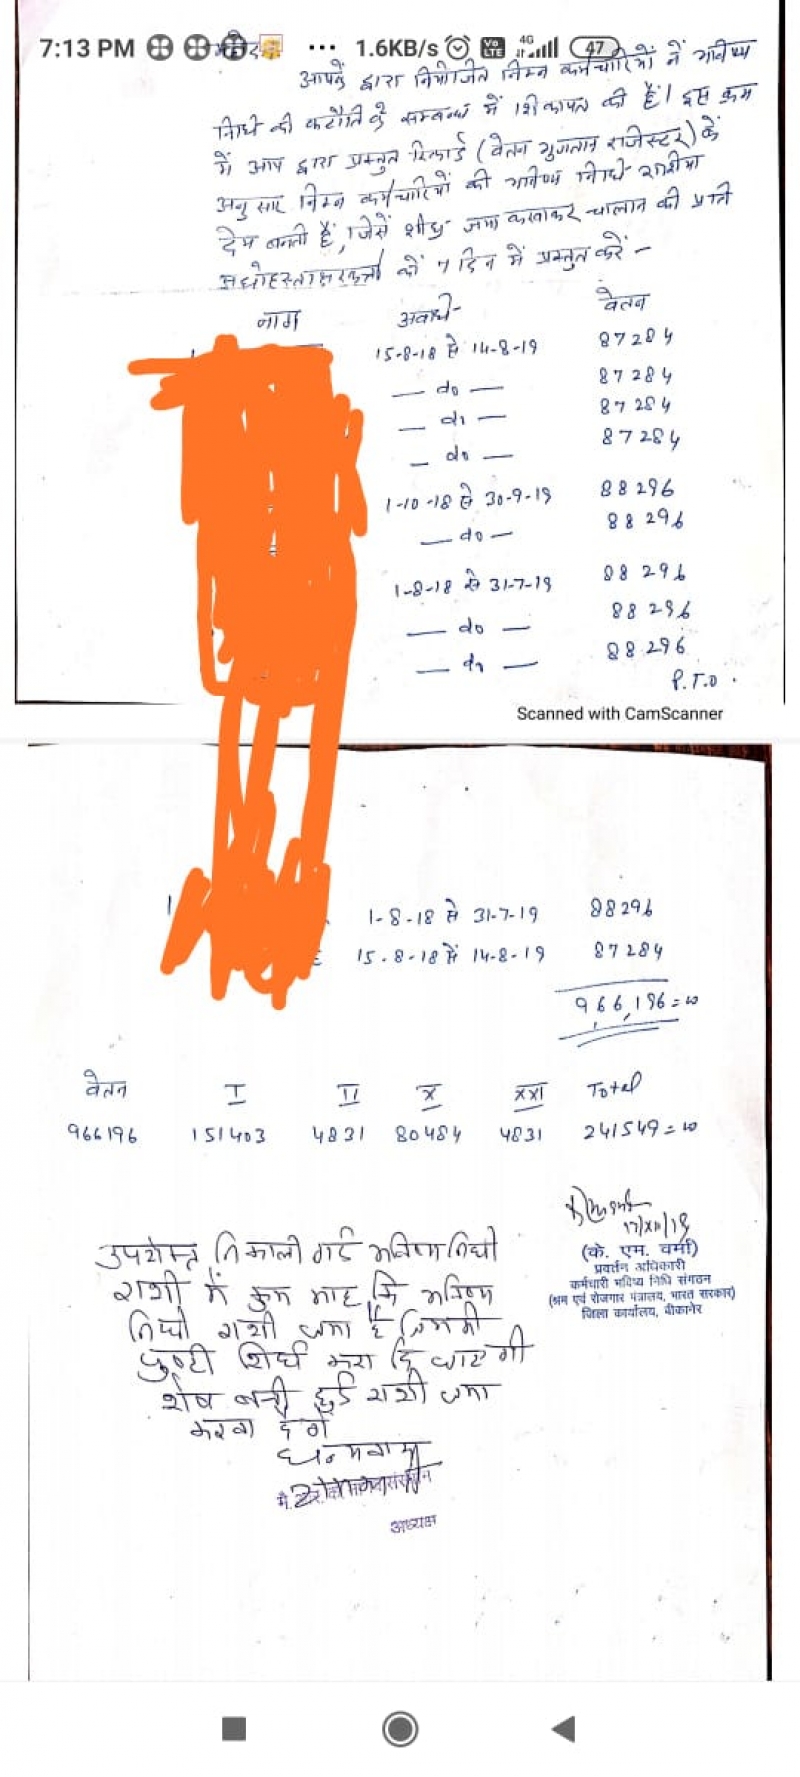 7:13 PM ... 1.6KB/s Vo LTE 4G 47
महोदय
आपके द्वारा नियोजित निम्न कर्मचारियों ने भविष्य
निधि की कटौति के सम्बन्ध में शिकायत की है। इस क्रम
में आप द्वारा प्रस्तुत रिकार्ड (वेतन भुगतान रजिस्टर) के
अनुसार निम्न कर्मचारियों की भविष्य निधि राशीया
देय बनती है, जिसें शीघ्र जमा करवाकर चालान की प्रति
अधोहस्ताक्षरकर्त्ता को 7 दिन में प्रस्तुत करें -
नाम अवधि- वेतन
15-8-18 से 14-8-19 87284
— do — 87284
— do — 87284
— do — 87284
1-10-18 से 30-9-19 88296
— do — 88296
1-8-18 से 31-7-19 88296
— do — 88296
— do — 88296
P.T.O.
Scanned with CamScanner
1-8-18 से 31-7-19 88296
15-8-18 से 14-8-19 87284
966,196=00
वेतन I II X XXI Total
966196 151403 4831 80484 4831 241549=00
17/XII/19
(के. एम. वर्मा)
प्रवर्तन अधिकारी
कर्मचारी भविष्य निधि संगठन
(श्रम एवं रोजगार मंत्रालय, भारत सरकार)
जिला कार्यालय, बीकानेर
उपरोक्त निकाली गई भविष्य निधी
राशी में कुछ माह कि भविष्य
निधी राशी जमा है जिसकी
पुष्टी शिर्घ करा दि जाएगी
शेष बची हुई राशी जमा
करवा देगे
धन्यवाद
अध्यक्ष